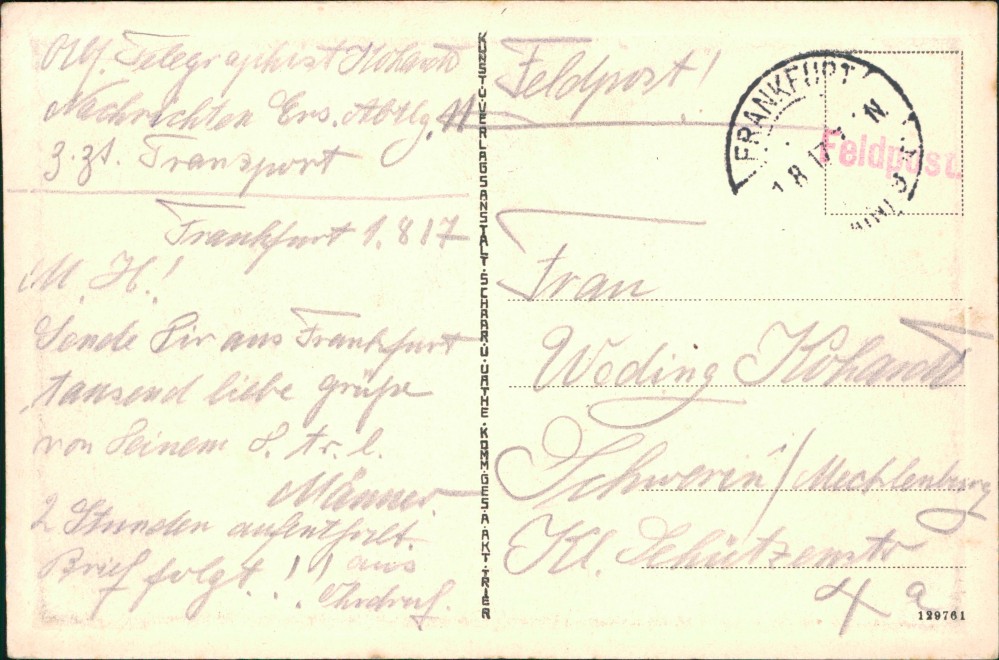 Telegraphist Kohardt
Nachrichten Ers. Abtlg. 11
z. Zt. Transport
Frankfurt 1.8 17
M. H.!
Sende Dir aus Frankfurt
tausend liebe grüße
von Deinem
Männer.
2 Stunden aufenthalt.
Brief folgt !! aus
KUNST-U-VERLAGSANSTALT-SCHAAR-U-DATHE-KOMM-GES-A-AKT-TRIER
Feldpost!
FRANKFURT
1.8 17 N
Feldpost.
Frau
Weding Kohardt
Schwerin / Mecklenburg
Kl. Schützenstr
4 a
129761